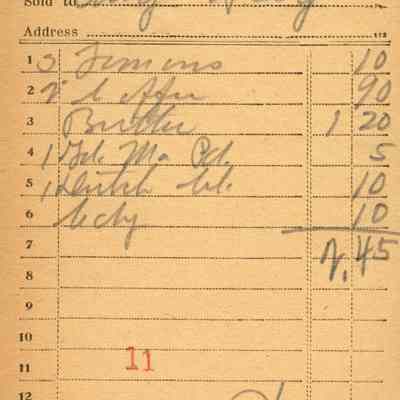 Sold to
Address
1 3 Lemons 10
2 2 Coffee 90
3 Butter 1 20
4 1 5
5 1 Dutch Cl. 10
6 10
7 2.45
8
9
10
11 11
12